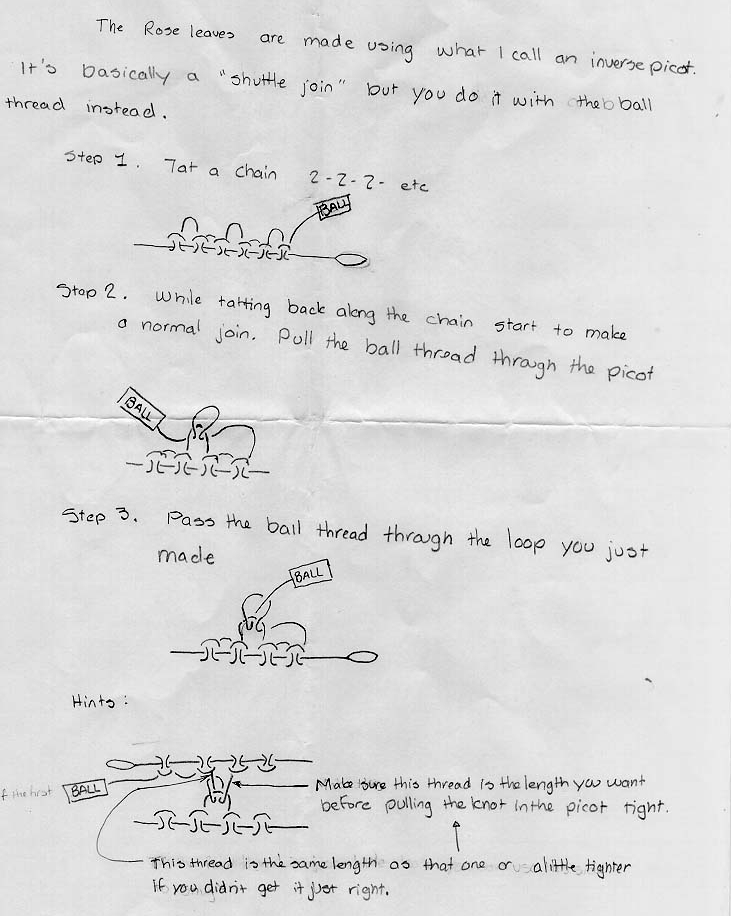 The Rose leaves are made using what I call an inverse picot.
It's basically a "shuttle join" but you do it with the ball
thread instead.
Step 1. Tat a chain 2-2-2- etc
BALL
Step 2. While tatting back along the chain start to make
a normal join. Pull the ball thread through the picot
BALL
Step 3. Pass the ball thread through the loop you just
made
BALL
Hints:
BALL
Make sure this thread is the length you want
before pulling the knot in the picot tight.
This thread is the same length as that one or a little tighter
if you didn't get it just right.